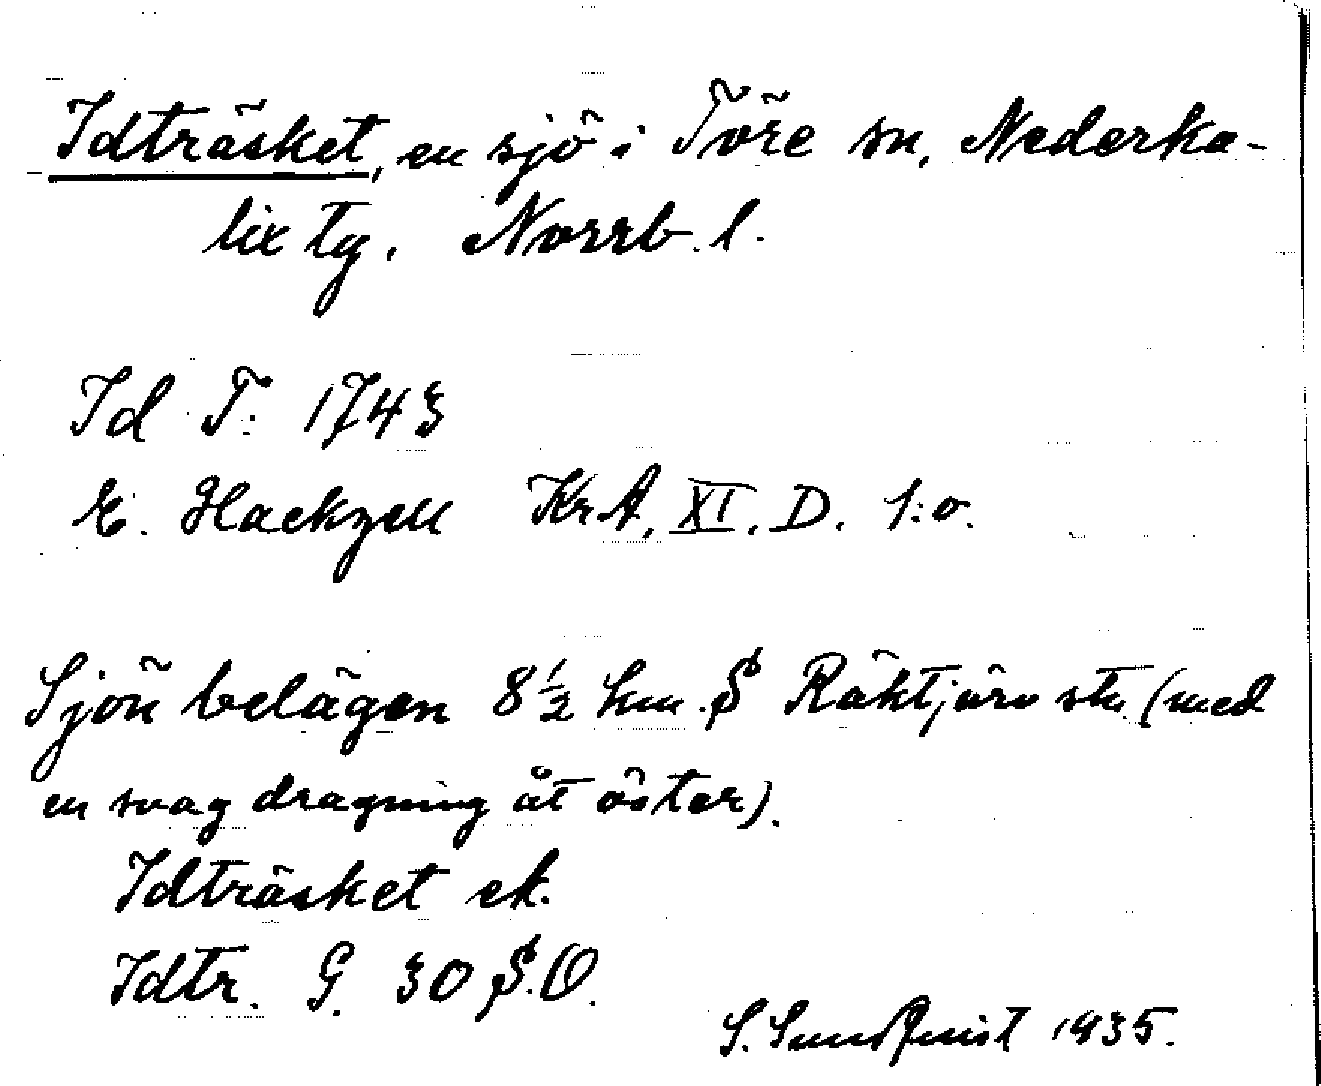 Idträsket, en sjö i Töre sn, Nederka-
lix tg, Norrb. l.
Id T: 1743
E. Hackzell KrA, XI, D. 1:o.
Sjön belägen 8 1/2 km. S Räktjärv stn (med
en svag dragning åt öster).
Idträsket ek.
Idtr. G. 30 S.O.
S. Sundquist 1935.